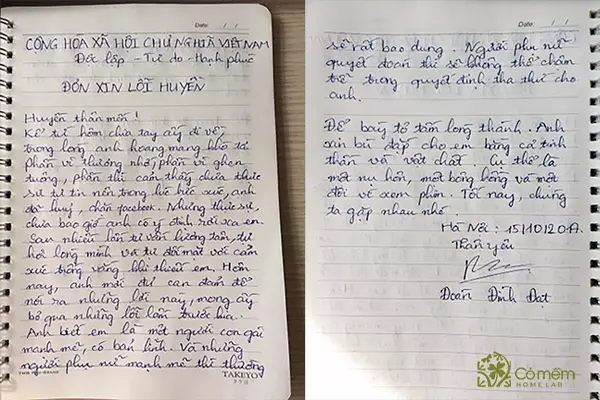 Date: / /
CỘNG HÒA XÃ HỘI CHỦ NGHĨA VIỆT NAM
Độc lập - Tự do - Hạnh phúc
ĐƠN XIN LỖI HUYỀN
Huyền thân mến!
Kể từ hôm chia tay ấy đi về
trong lòng anh hoang mang khó tả.
Phần vì thương nhớ, phần vì ghen
tuông, phần thì cảm thấy chưa thực
sự tự tin nên trong lúc bức xúc, anh
đã huỷ, chặn facebook. Nhưng thực sự,
chưa bao giờ anh có ý định rời xa em.
Sau nhiều lần tự vấn lương tâm, tự
hỏi lòng mình và tự đối mặt với cảm
xúc trống vắng khi thiếu em. Hôm
nay, anh mới đủ can đảm để
nói ra những lời này, mong ấy
bỏ qua những lỗi lầm trước kia.
Anh biết em là một người con gái
mạnh mẽ, có bản lĩnh. Và những
người phụ nữ mạnh mẽ thì thường
TAKEYO
Date: / /
sẽ rất bao dung. Người phụ nữ
quyết đoán thì sẽ không thể chậm
trễ trong quyết định tha thứ cho
anh.
Để bày tỏ tấm lòng thành. Anh
xin bù đắp cho em bằng cả tinh
thần và vật chất. Cụ thể là
một nụ hôn, một bông hồng và một
đôi vé xem phim. Tối nay, chúng
ta gặp nhau nhé.
Hà Nội:
Thân yêu
Đoàn Đình Đạt
Cỏ mềm
HOME LAB